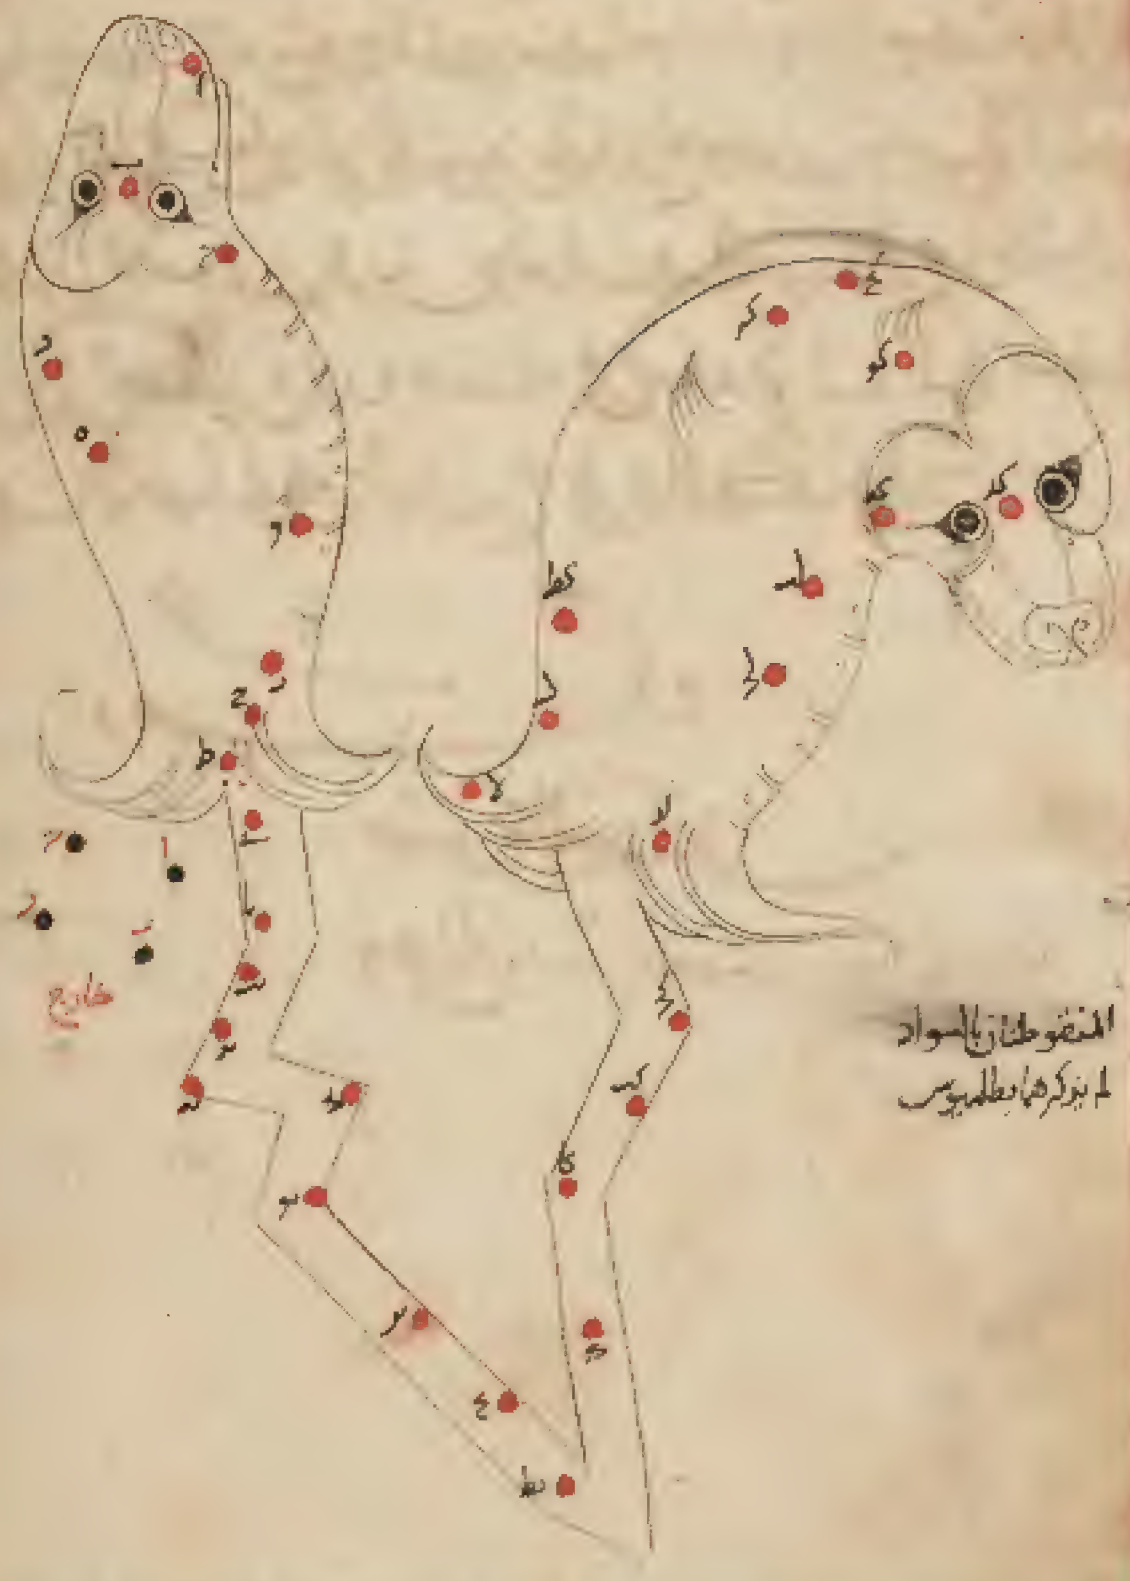 ا
ب
ج
د
ه
و
ز
ح
ط
ى
يا
يب
يج
يد
يه
يو
يز
يح
يط
ك
كا
كب
كج
كد
كه
كو
كز
كح
كط
ل
لا
لب
لج
لد
ا
ب
ج
د
خارج
المنقوطتان بالسواد
لم يذكرهما بطلميوس